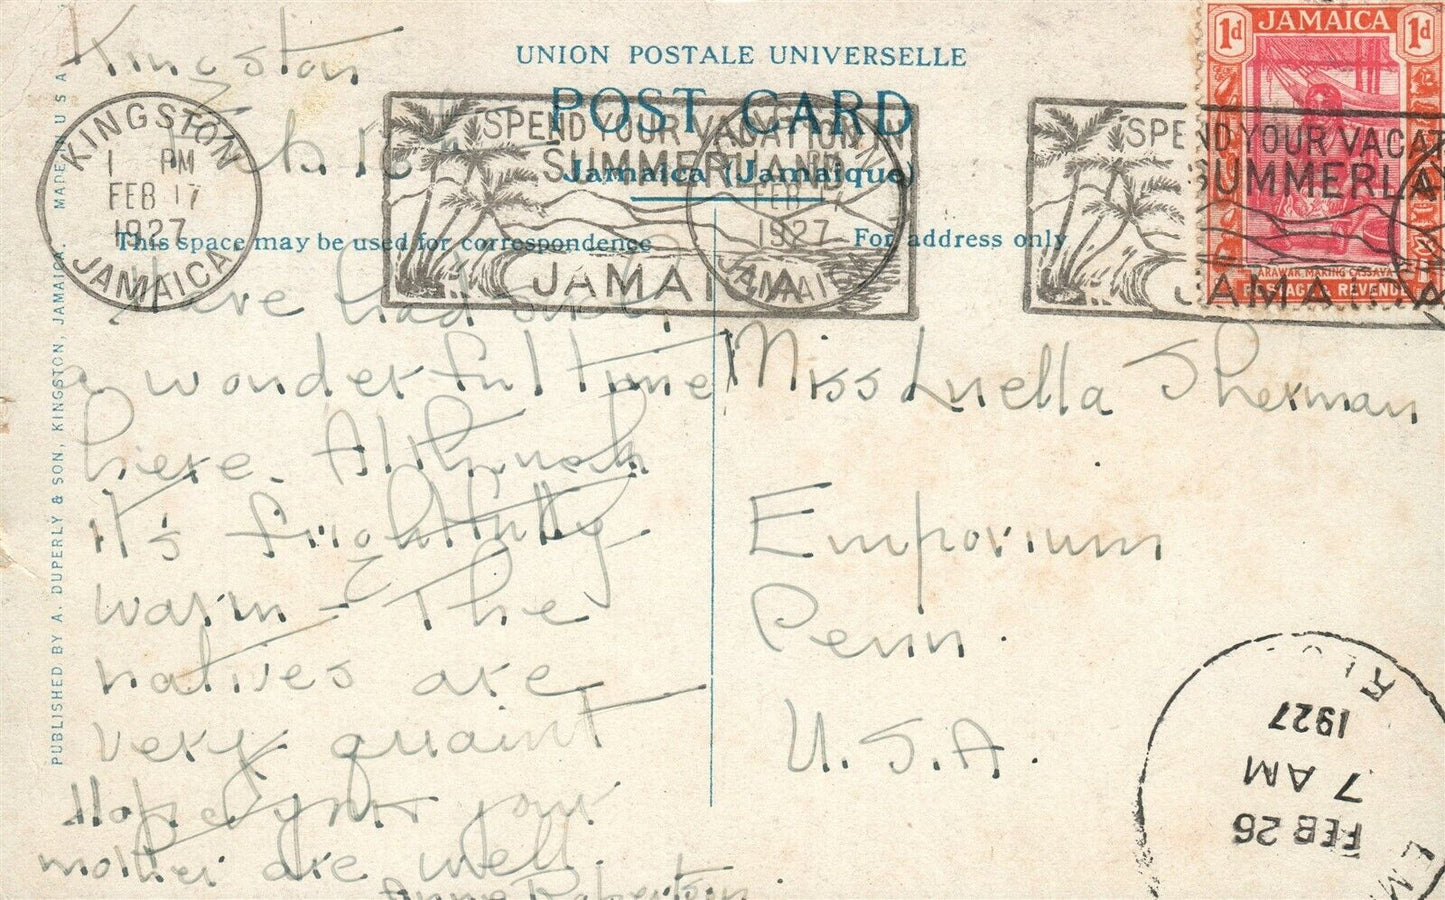 Kingston
Feb. 16th
UNION POSTALE UNIVERSELLE
POST CARD
Jamaica (Jamaïque)
This space may be used for correspondence
For address only
KINGSTON
1 PM
FEB 17
1927
JAMAICA
SPEND YOUR VACATION IN
SUMMERLAND
JAMAICA
FEB 17
1927
JAMAICA
SPEND YOUR VACAT
SUMMERLA
JAMA
1d JAMAICA 1d
ARAWAK MAKING CASSAVA
POSTAGE & REVENUE
Have had such
a wonderful time
here. Although
it's frightfully
warm - The
natives are
very quaint
Hope you & your
mother are well.
Anne Robertson
Miss Luella Sherman
Emporium
Penn.
U.S.A.
FEB 26
7 AM
1927
EM
PUBLISHED BY A. DUPERLY & SON, KINGSTON, JAMAICA. MADE IN U S A